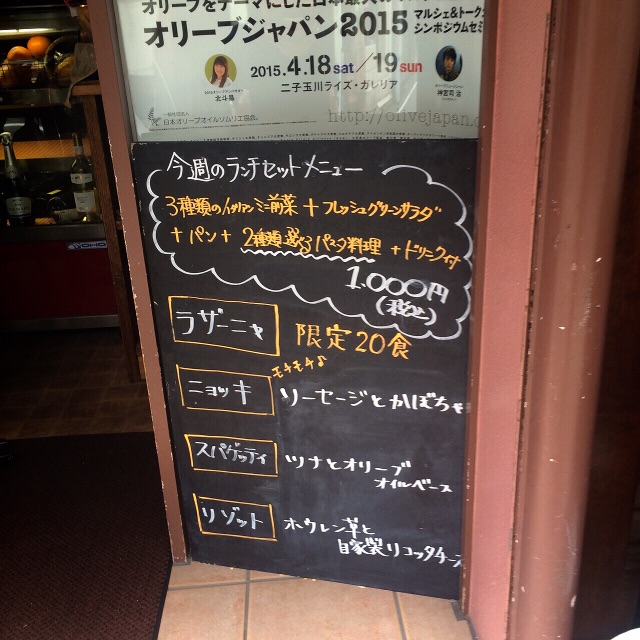 オリーブをテーマにした日本最大の
オリーブジャパン2015
マルシェ&トーク
シンポジウムセミ
2015.4.18sat/19sun
二子玉川ライズ・ガレリア
北斗晶
神宮司 治
一般社団法人
日本オリーブオイルソムリエ協会
http://olivejapan.c
今週のランチセットメニュー
3種類のイタリアンミニ前菜+フレッシュグリーンサラダ
+パン+2種類選べるパスタ料理+ドリンク付
1.000円
(税込)
ラザーニャ 限定20食
モチモチ♪
ニョッキ ソーセージとかぼちゃ
スパゲッティ ツナとオリーブ
オイルベース
リゾット ホウレン草と
自家製リコッタチーズ